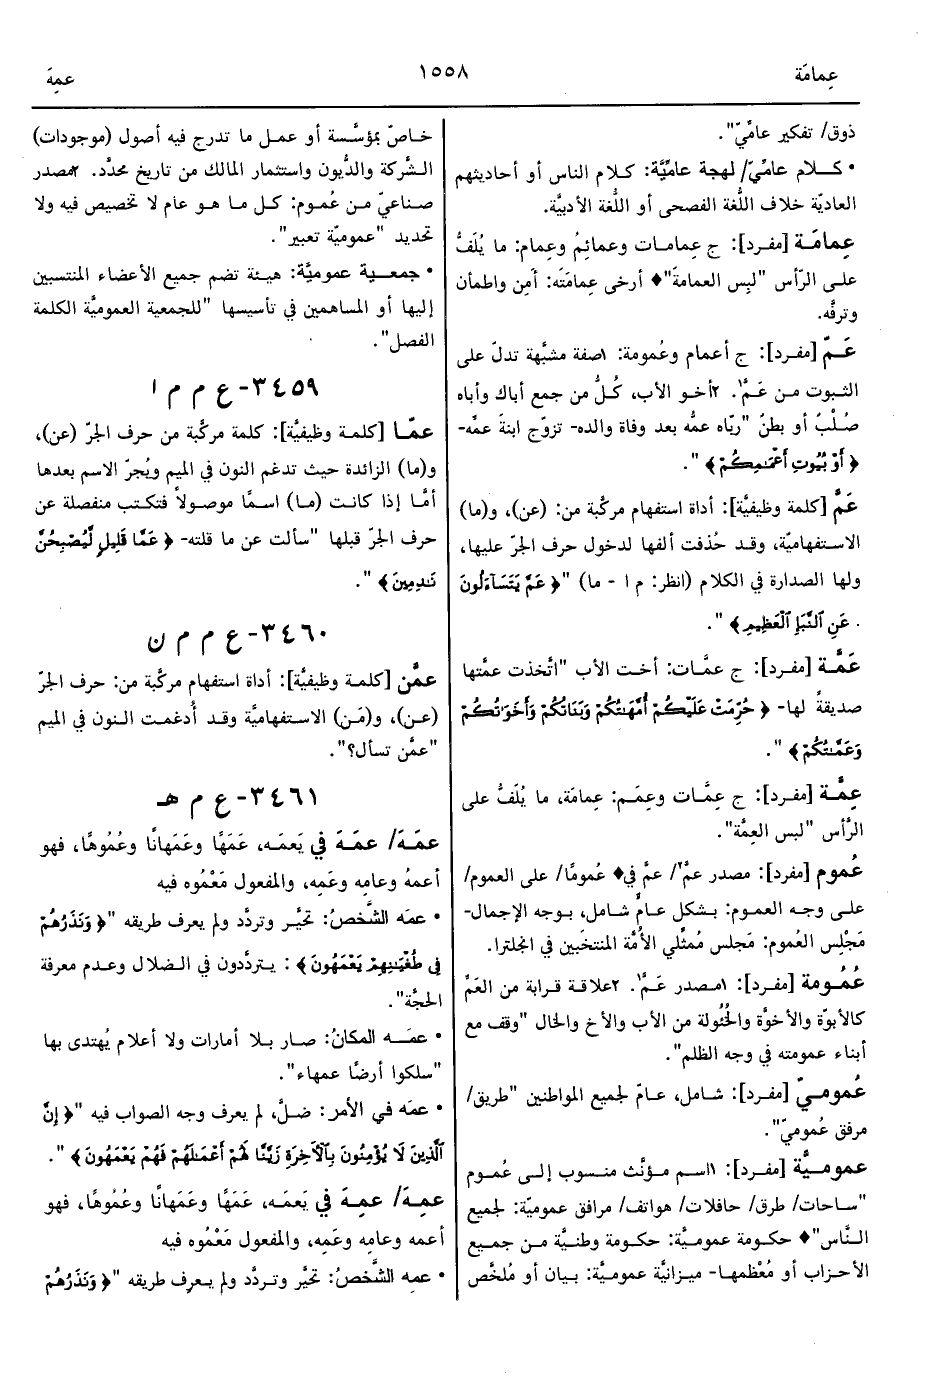 عِمامَة
١٥٥٨
عمِهَ
ذوق/ تفكير عامّيّ".
• كـلام عامِّيّ/ لهجة عامِّيَّة: كلام الناس أو أحاديثهم
العاديّة خلاف اللُّغة الفصحى أو اللُّغة الأدبيَّة.
عِمامَة [مفرد]: ج عِمامات وعمائِمُ وعِمام: ما يُلَفُّ
على الرَّأس "لبِس العمامةَ"♦ أرخى عِمامتَه: أمِن واطمأن
وترفَّه.
عَمّ [مفرد]: ج أعمام وعُمومة: ١صفة مشبَّهة تدلّ على
الثبوت من عَمَّ١. ٢أخو الأب، كُلُّ من جمع أباك وأباه
صُلْبٌ أو بطنٌ "ربّاه عمُّه بعد وفاة والده- تزوّج ابنةَ عمِّه-
﴿أَوْ بُيُوتِ أَعْمَامِكُمْ﴾".
عَمَّ [كلمة وظيفيَّة]: أداة استفهام مركَّبة من: (عن)، و(ما)
الاستفهاميّة، وقد حُذفت ألفها لدخول حرف الجرّ عليها،
ولها الصدارة في الكلام (انظر: م ا - ما) "﴿عَمَّ يَتَسَاءَلُونَ
. عَنِ النَّبَإِ الْعَظِيمِ﴾".
عَمَّة [مفرد]: ج عمَّات: أخت الأب "اتَّخذت عمَّتها
صديقةً لها- ﴿حُرِّمَتْ عَلَيْكُمْ أُمَّهَاتُكُمْ وَبَنَاتُكُمْ وَأَخَوَاتُكُمْ
وَعَمَّاتُكُمْ﴾".
عِمَّة [مفرد]: ج عِمَّات وعِمَم: عِمامَة، ما يُلَفُّ على
الرَّأس "لبس العِمَّة".
عُموم [مفرد]: مصدر عمَّ٢/ عمَّ في♦ عُمومًا/ على العموم/
على وجه العموم: بشكل عامٍّ شامل، بوجه الإجمال-
مَجْلِس العُموم: مَجلس مُمثِّلي الأُمَّة المنتخَبين في انجلترا.
عُمُومة [مفرد]: ١مصدر عَمَّ١. ٢علاقة قرابة من العَمّ
كالأبوّة والأخوَّة والخُئُولة من الأب والأخ والخال "وقف مع
أبناء عمومته في وجه الظلم".
عُموميّ [مفرد]: شامل، عامّ لجميع المواطنين "طريق/
مرفق عُموميّ".
عموميَّة [مفرد]: ١اسم مؤنَّث منسوب إلى عُموم
"ساحات/ طرق/ حافلات/ هواتف/ مرافق عموميّة: لجميع
النَّاس"♦ حكومة عموميَّة: حكومة وطنيَّة من جميع
الأحزاب أو مُعْظمها- ميزانيَّة عموميَّة: بيان أو مُلخَّص
خاصّ بمؤسَّسة أو عمل ما تدرج فيه أصول (موجودات)
الشَّركة والدُّيون واستثمار المالك من تاريخ محدَّد. ٢مصدر
صناعيّ من عُموم: كل ما هو عام لا تخصيص فيه ولا
تحديد "عموميّة تعبير".
• جمعية عموميَّة: هيئة تضم جميع الأعضاء المنتسبين
إليها أو المساهمين في تأسيسها "للجمعية العموميَّة الكلمة
الفصل".
٣٤٥٩- ع م م ا
عمّا [كلمة وظيفيَّة]: كلمة مركَّبة من حرف الجرّ (عن)،
و(ما) الزائدة حيث تدغم النون في الميم ويُجرّ الاسم بعدها
أمَّا إذا كانت (ما) اسمًا موصولاً فتكتب منفصلة عن
حرف الجرّ قبلها "سألت عن ما قلته- ﴿عَمَّا قَلِيلٍ لَّيُصْبِحُنَّ
نَادِمِينَ﴾".
٣٤٦٠- ع م م ن
عمَّن [كلمة وظيفيَّة]: أداة استفهام مركَّبة من: حرف الجرّ
(عن)، و(مَن) الاستفهاميَّة وقد أُدغمت النون في الميم
"عمَّن تسأل؟".
٣٤٦١- ع م هـ
عمَهَ/ عمَهَ في يَعمَه، عَمَهًا وعَمَهانًا وعُمُوهًا، فهو
أعمهُ وعامِه وعَمِه، والمفعول مَعْمُوه فيه
• عمَه الشَّخصُ: تحيَّر وتردَّد ولم يعرف طريقه "﴿وَنَذَرُهُمْ
فِي طُغْيَانِهِمْ يَعْمَهُونَ﴾: يتردَّدون في الضلال وعدم معرفة
الحجَّة".
• عمَه المكانُ: صار بلا أمارات ولا أعلام يُهتدى بها
"سلكوا أرضًا عمهاء".
• عمَه في الأمر: ضلَّ، لم يعرف وجه الصواب فيه "﴿إِنَّ
الَّذِينَ لَا يُؤْمِنُونَ بِالْآخِرَةِ زَيَّنَّا لَهُمْ أَعْمَالَهُمْ فَهُمْ يَعْمَهُونَ﴾".
عمِهَ/ عمِهَ في يَعمَه، عَمَهًا وعَمَهانًا وعُمُوهًا، فهو
أعمه وعامِه وعَمِه، والمفعول مَعْمُوه فيه
• عمِه الشَّخصُ: تحيَّر وتردَّد ولم يعرف طريقه "﴿وَنَذَرُهُمْ